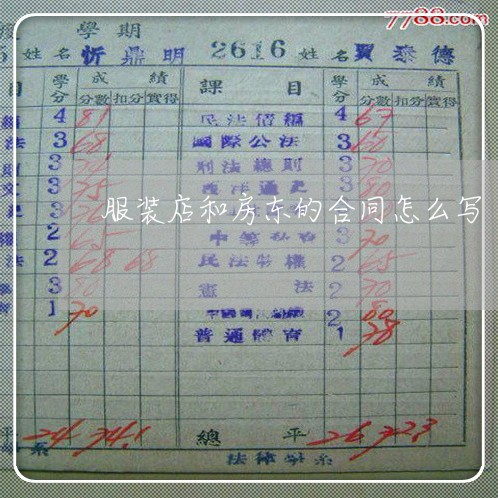 7788.com
學期
姓名 忻鼎明 2616 姓名 賈泰德
目 學分 成績 課目 學分 成績
分數 扣分 實得 分數 扣分 實得
4 81 民法債編 4 67
法 3 68 國際公法 3 60
3 刑法總則 3 70
3 75 3 80
服装店和房东的合同怎么写
3
2 65 3 70
法 2 68 68 民法物權 2 65
3 80 憲法 2 70
1 70 2 80
普通體育 1 78
平 24 74.1 總平 26 72.3
系 法律學系